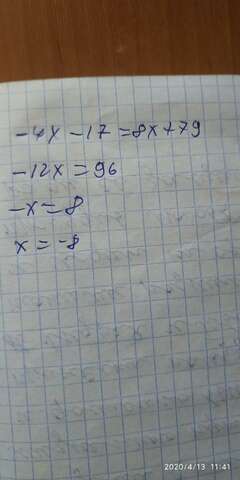 -4x - 17 = 8x + 79
-12x = 96
-x = 8
x = -8
2020/4/13 11:41